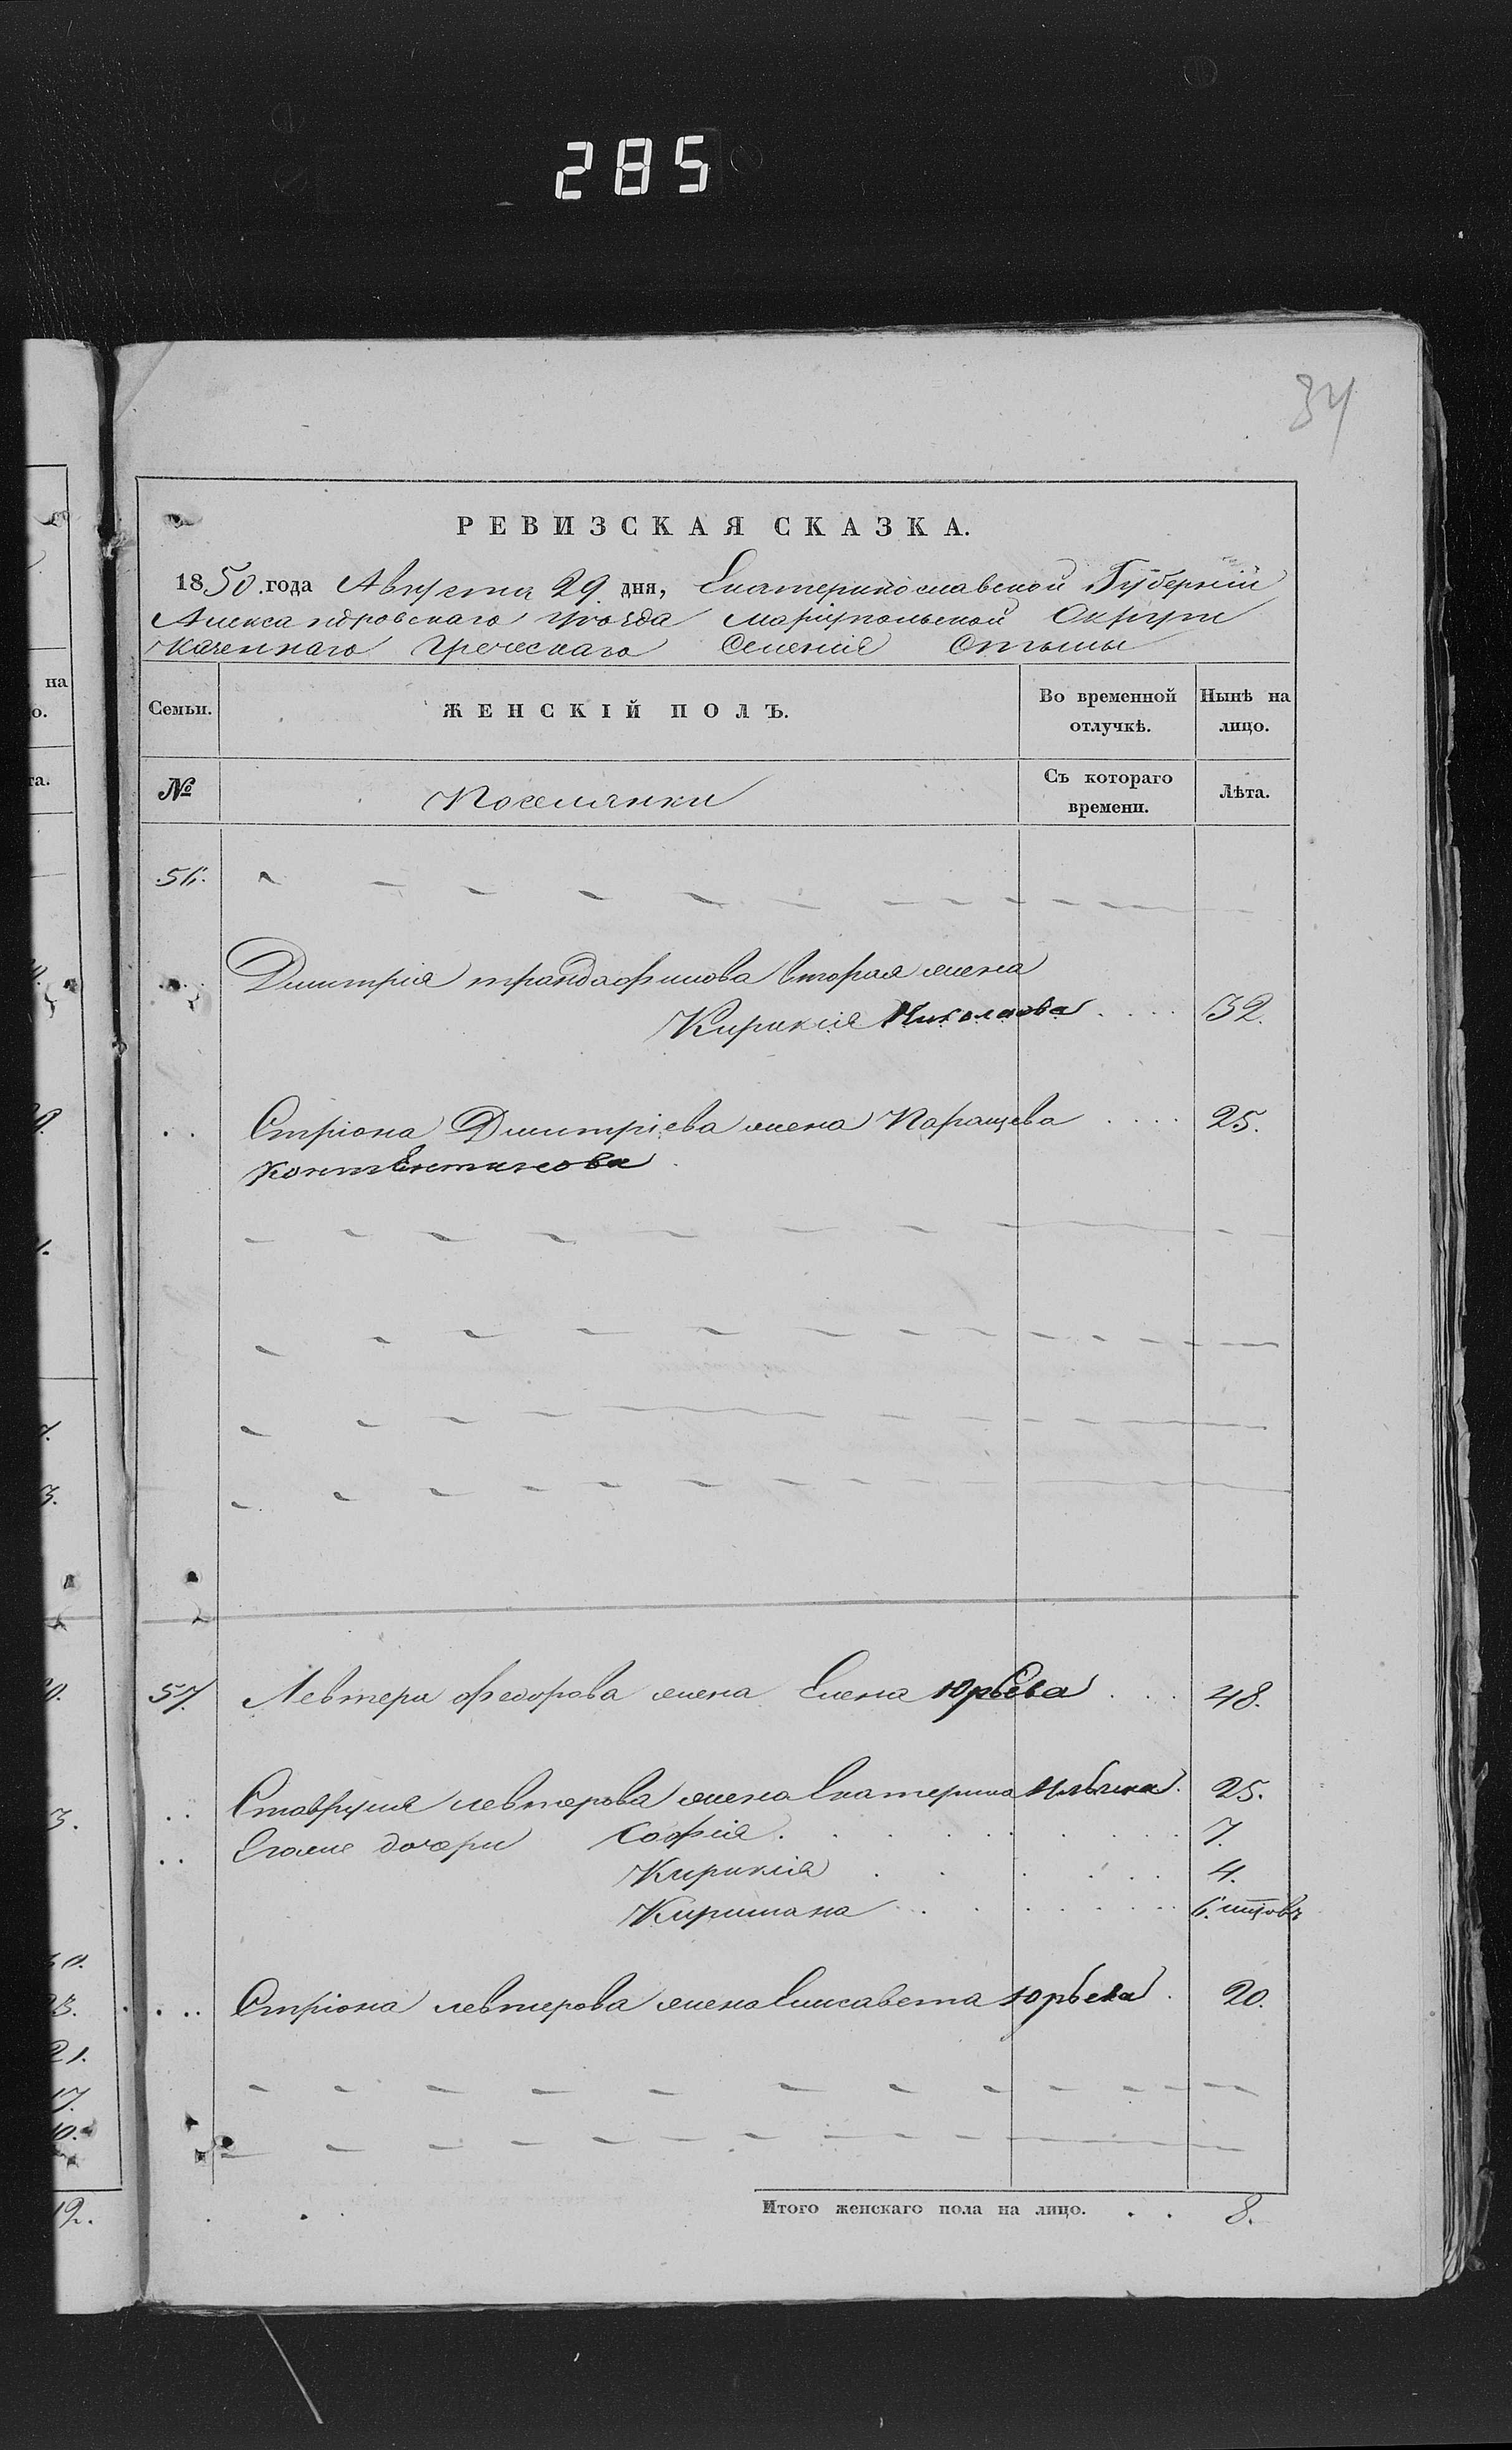 285
34
РЕВИЗСКАЯ СКАЗКА.
1850 года Августа 29 дня, Екатеринославской Губерніи
Александровскаго уѣзда Маріупольской Округи
Казеннаго Греческаго Селенія Стылы
Семьи. ЖЕНСКІЙ ПОЛЪ. Во временной отлучкѣ. Нынѣ на лицо.
№ Поселянки Съ котораго времени. Лѣта.
56.
Димитрія трандафилова вторая жена
Кирикія Николаова 32.
Стріона Димитріева жена Паращева 25.
Контентинова
57. Левтера федорова жена Елена Юрьева 48.
Ставруша левтерова жена Екатерина Ильина 25.
Егоже дочери Софія 7.
Кирикія 4.
Киришана 6. мцовъ
Стріона левтерова жена Елисавета Юрьева 20.
Итого женскаго пола на лицо. 8.